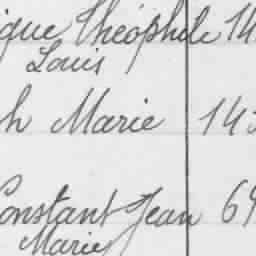 ique Théophile 14
Louis
h Marie 14
Constant Jean 69
Marie